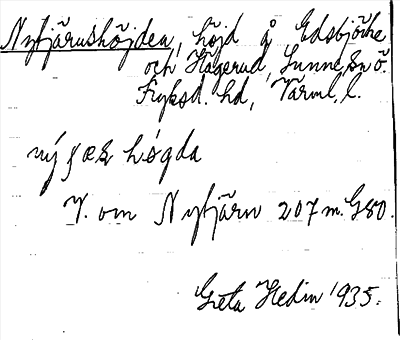 Nytjärnshöjden, höjd å Edsbjörke
och Hägerud, Sunne sn ö.
Fryksd. hd, Värml. l.
V. om Nytjärn 207 m. G 80.
Greta Hedin 1935.